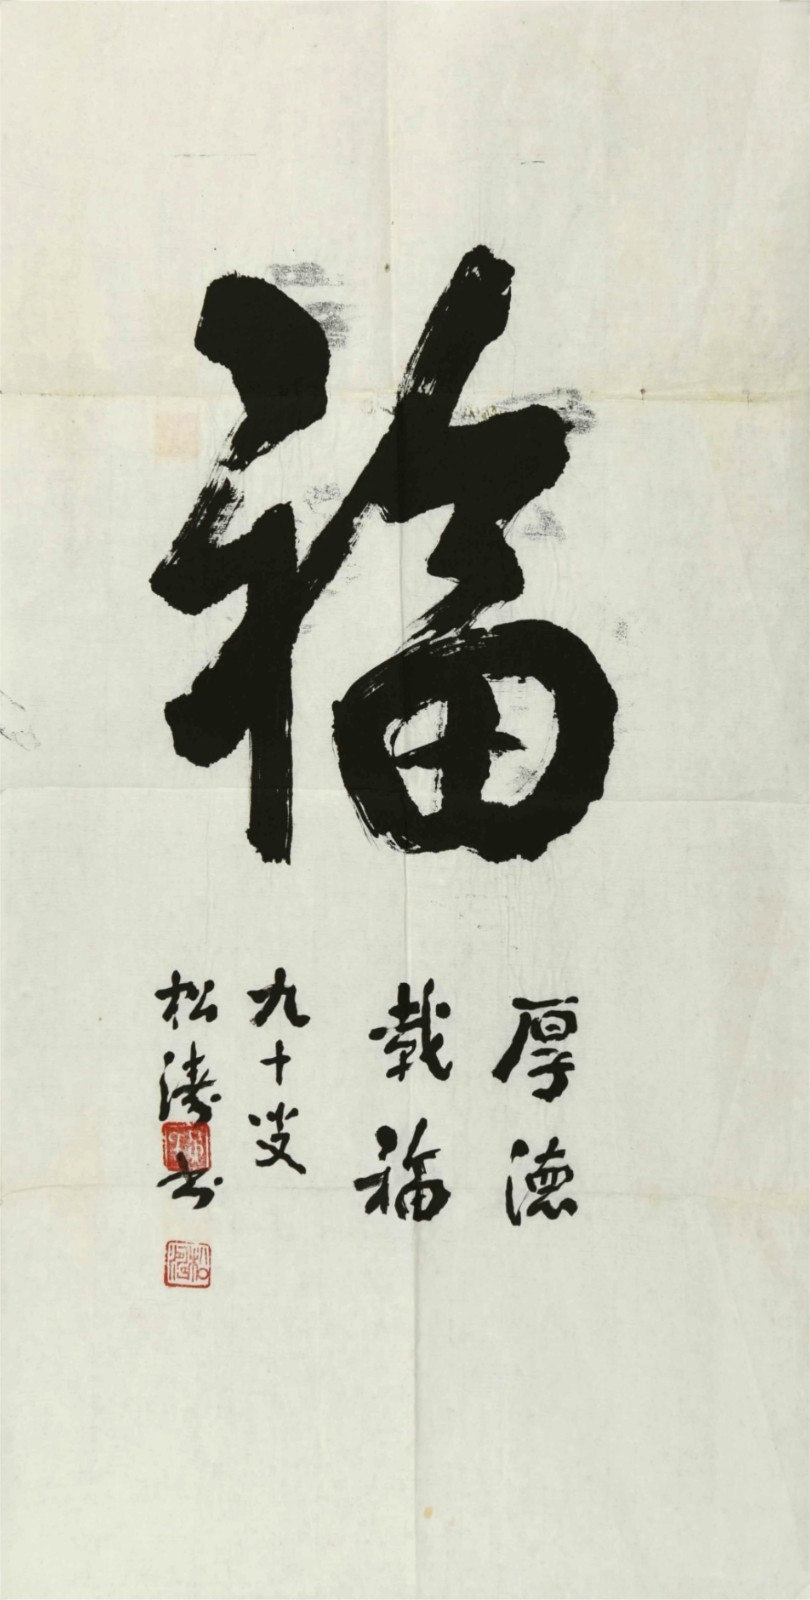 福
厚德
載福
九十叟
松濤书